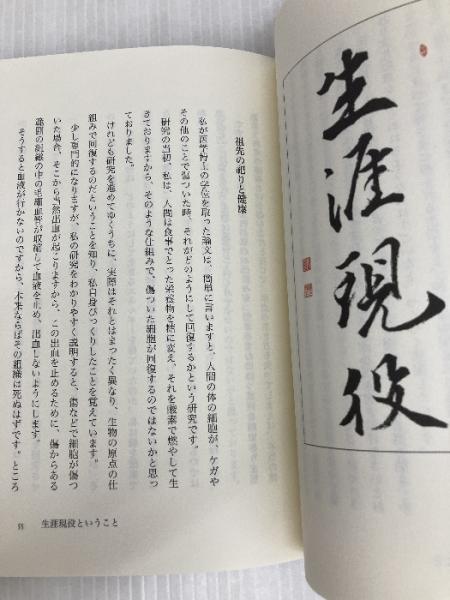 生涯現役
祖先の祀りと健康
私が医学博士の学位を取った論文は、簡単に言いますと、人間の体の細胞が、ケガや
その他のことで傷ついた時、それがどのようにして回復するかという研究です。
研究の当初、私は、人間は食事でとった栄養物を糖に変え、それを酸素で燃やして生
きておりますから、そのような仕組みで、傷ついた細胞が回復するのではないかと思っ
ておりました。
けれども研究を進めてゆくうちに、実際はそれとはまったく異なり、生物の原点の仕
組みで回復するのだということを知り、私自身びっくりしたことを覚えています。
少し専門的になりますが、私の研究をわかりやすく説明すると、傷などで細胞が傷つ
いた場合、そこから当然出血が起こりますから、この出血を止めるために、傷からある
範囲の組織の中の毛細血管が収縮して血液を止め、出血しないようにします。
そうすると血液が行かないのですから、本来ならばその組織は死ぬはずです。ところ
生涯現役ということ